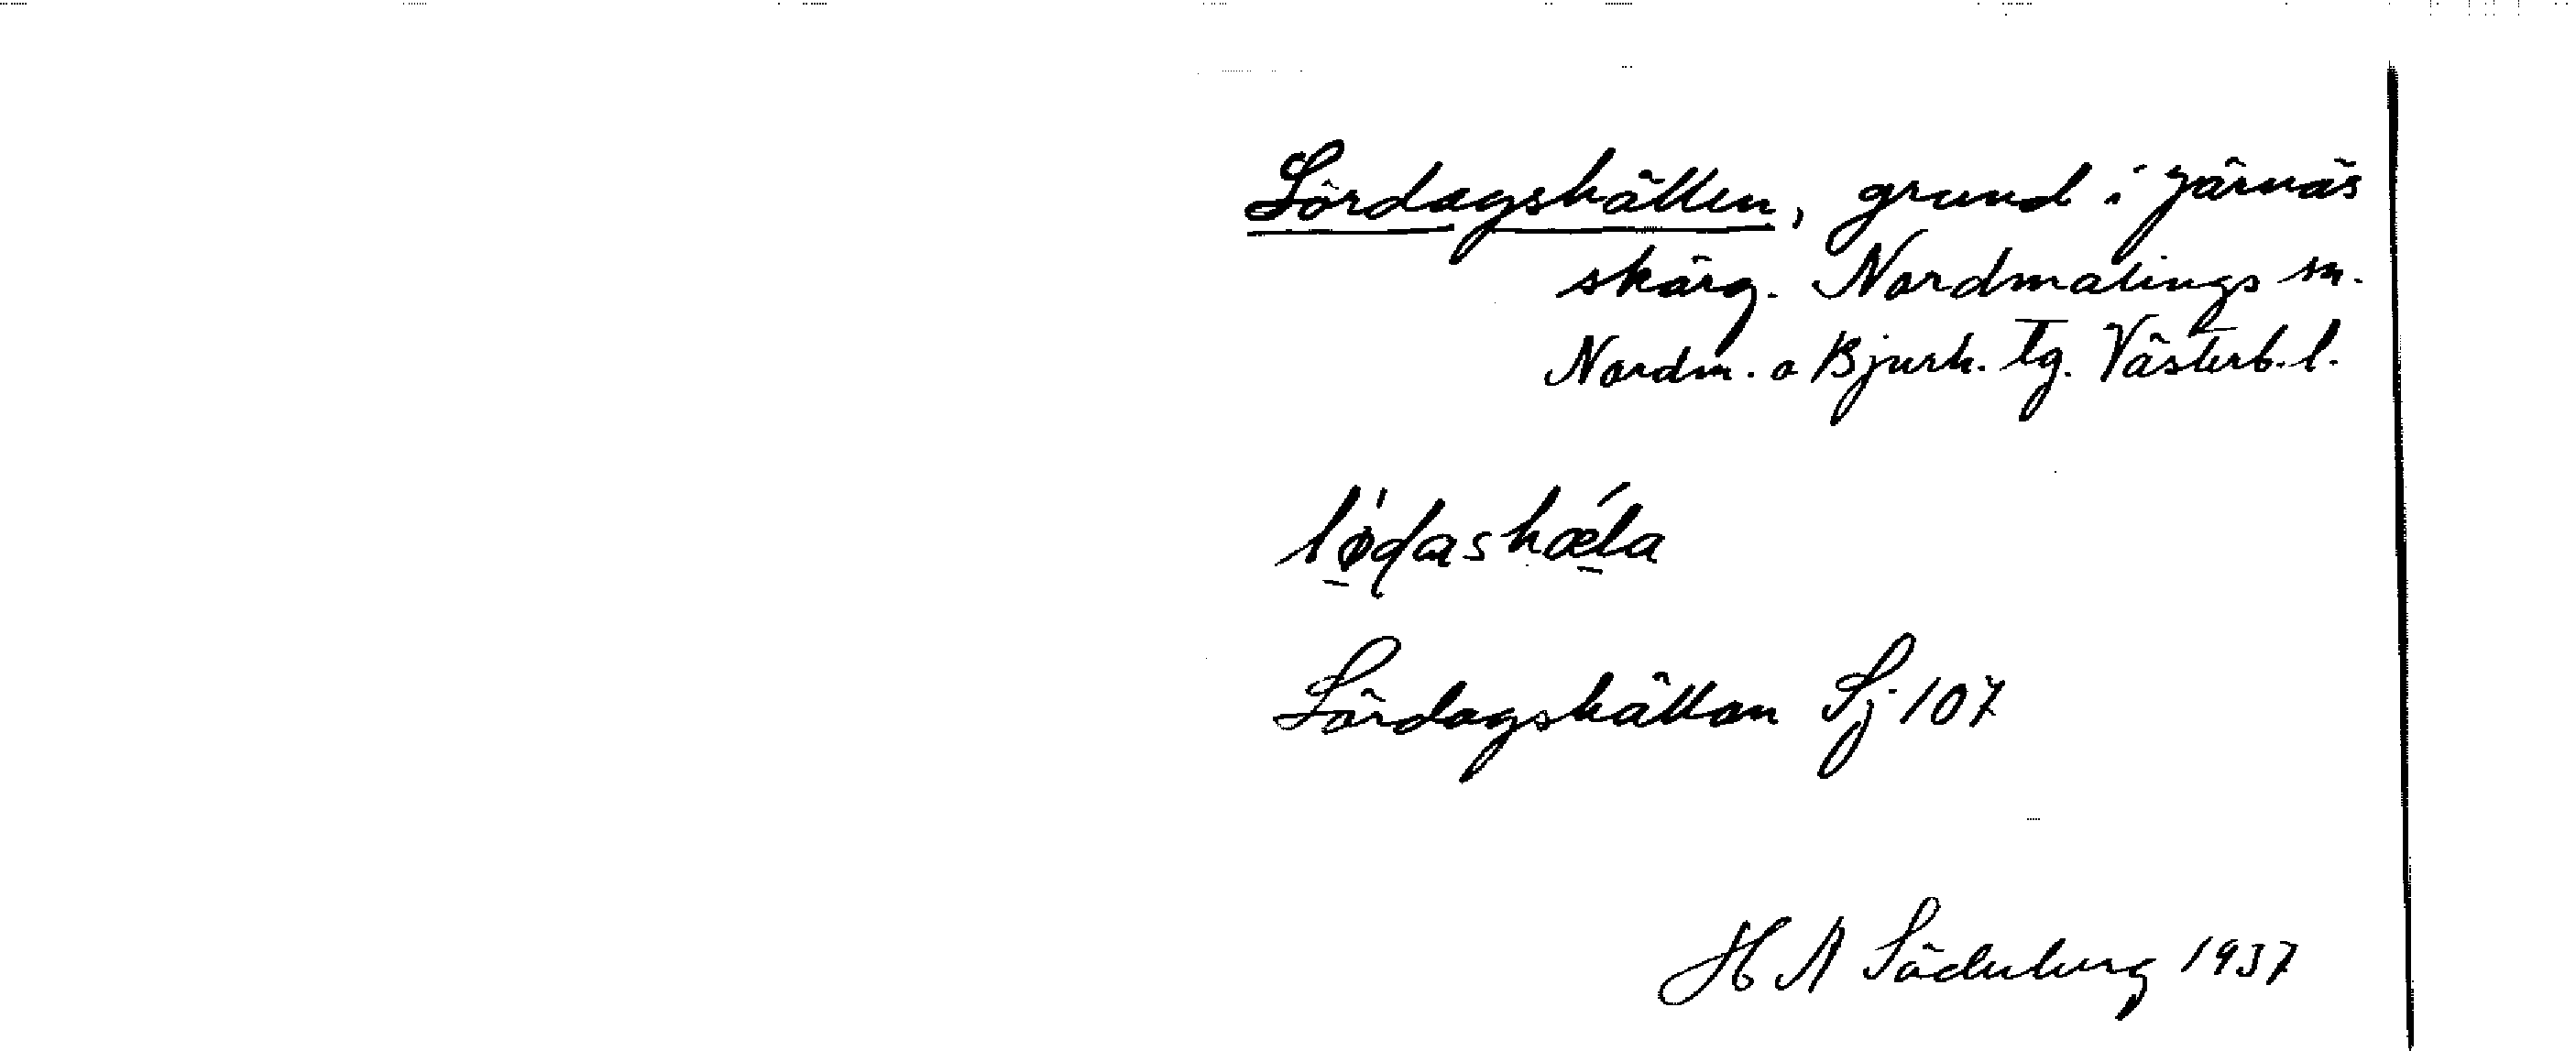 Lördagshällen, grund i Järnäs
skärg. Nordmalings sn.
Nordm. o Bjurh. Tg. Västerb. l.
lø̱´dashæ̱´la
Lördagshällan Sj 107
H A Söderberg 1937